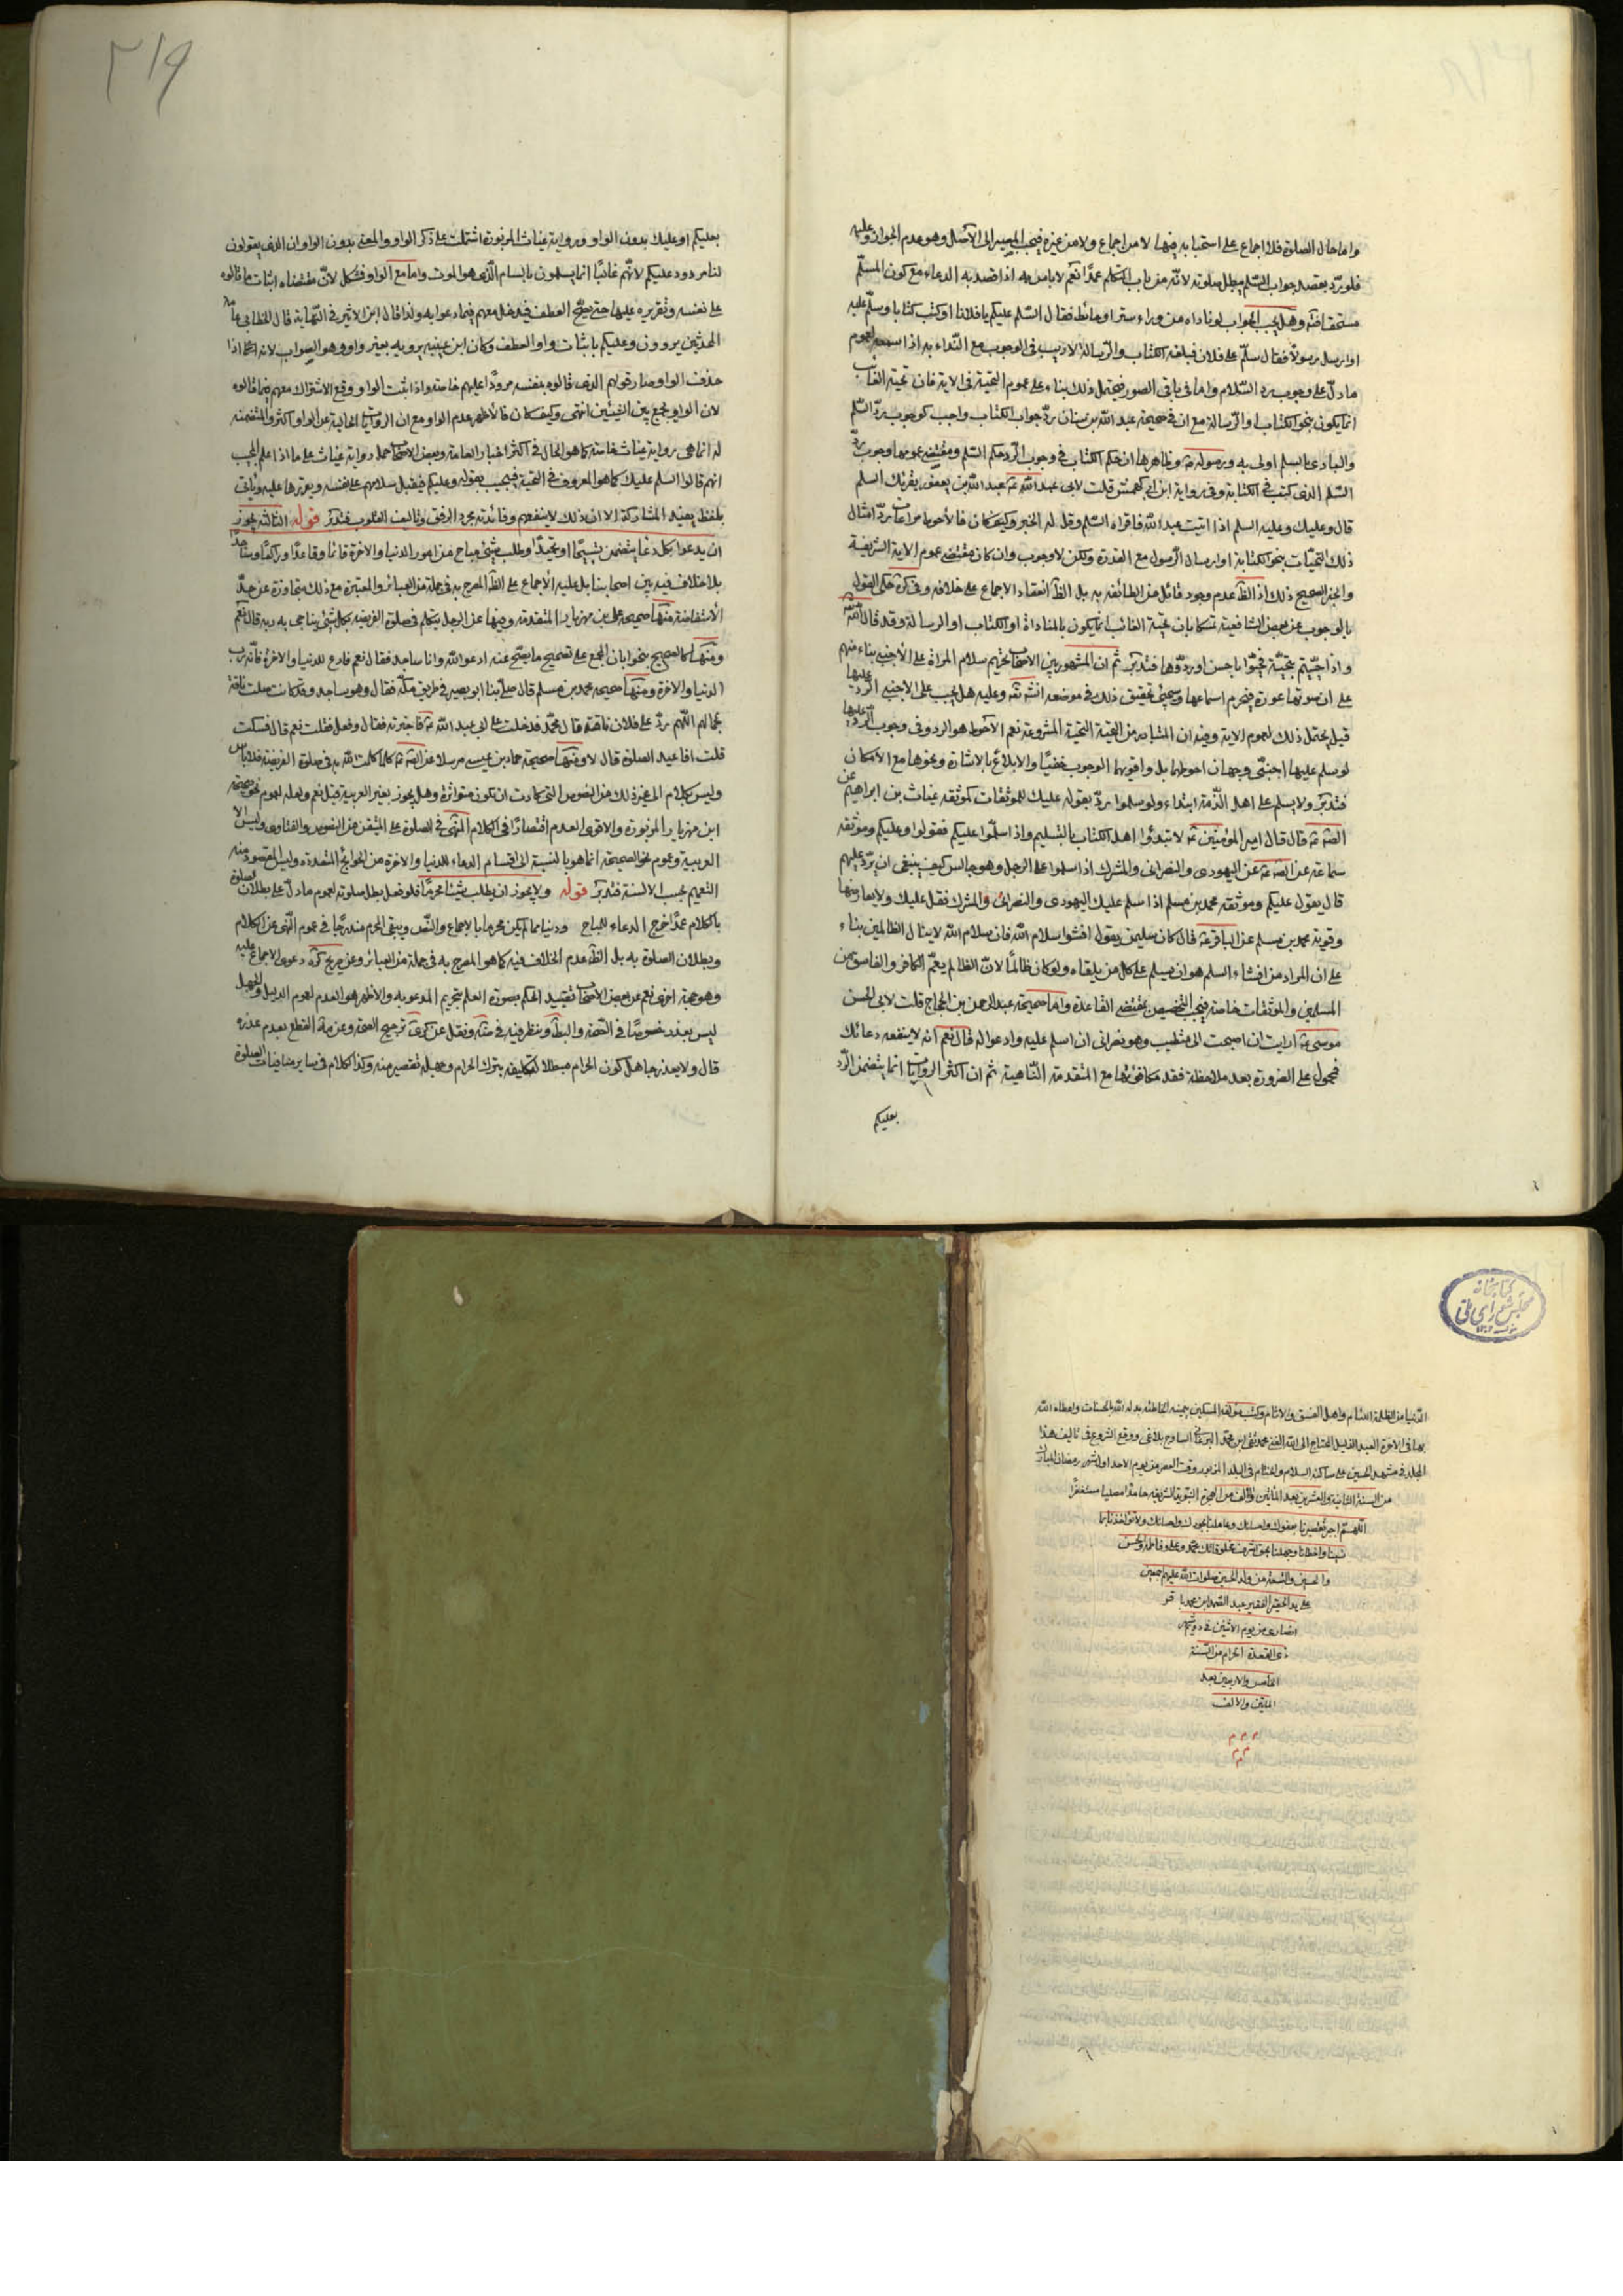 واما حال الصلوة فلا اجماع على استحبابه فيها لا من اجماع ولا من غيره فيجب المصير الى الاصل وهو عدم الجواز وعليه
فلو ردّ بقصد جواب السّلم يبطل صلوته لانّه من باب التكلم عمدًا نعم لا باس به اذا قصد به الدعاء مع كون المسلّم
مستحقا فتّه وهل يجب الجواب لو ناداه من وراء ستر او حائط فقال السّلم عليكم يا فلان او كتب كتابا وسلّم عليه
او ارسل رسولاً فقال سلّم على فلان فبلغه الكتاب والرّسالة لا ريب في الوجوب مع النّداء به اذا سمعه لعموم
ما دلّ على وجوب رد السّلام واما في باقي الصور فيحتمل ذلك بناء على عموم التحيّة في الاية فان تحيّة الغائب
انما يكون بنحو الكتاب او الرّسالة مع ان في صحيحة عبد الله بن سنان ردّ جواب الكتاب واجب كوجوب ردّ السّلم
والبادى بالسلم اولى به ورسوله وظاهرها ان حكم الكتاب في وجوب الردّ حكم السّلم ومقتضى عمومها وجوب ردّ
السّلم الذى كتب في الكتابة وفى رواية ابن ابى كهمش قلت لابى عبد الله عبد الله بن يعفور يقرئك السلم
قال وعليك وعليه السلم اذا اتيت عبد الله فاقراه السّلم وقل له الخبر وكيف كان فالاحوط مراعاة ردّ امثال
ذلك التحيّات بنحو الكتابة او ارسال الرّسول مع القدرة ولكن لا وجوب وان كان مقتضى عموم الاية الشريفة
والخبر الصحيح ذلك اذ الظّ عدم وجود قائل من الطائفه به بل الظّ انعقاد الاجماع على خلافه وفى كرة حكى القول
بالوجوب عن بعض الشافعية تمسكا بان تحية الغائب انما يكون بالمناداة او الكتاب او الرسالة وقد قال الله
واذا حيّيتم بتحيّة فحيّوا باحسن او ردّوها فتدبّر ثم ان المشهور بين الاصحاب تحريم سلام المراة على الاجنبى بناء منهم
على ان صوتها عورة فيحرم اسماعها وسيجئ تحقيق ذلك في موضعه انشّ تعّ وعليه هل يجب على الاجنبى الردّ عليها
قيل يحتمل ذلك لعموم الاية وفيه ان المتبادر من التحية التحية المشروعة نعم الاحوط هو الرد وفى وجوب الردّ عليها
لو سلم عليها اجنبّى وجهان احوطهما بل واقويهما الوجوب خفيّا والابلاغ بالاشارة ونحوها مع الامكان
فتدبّر ولا يسلم على اهل الذّمة ابتداء ولو سلموا ردّ بقوله عليك للموثقات كموثقه غياث بن ابراهيم عن
الصّ قال قال امير المؤمنين لا تبدؤا اهل الكتاب بالتسليم واذا سلّموا عليكم فقولوا وعليكم وموثقه
سماعة عن الصّ عن اليهودى والنصرانى والمشرك اذا سلموا على الرجل وهو جالس كيف ينبغى ان يردّ عليهم
قال يقول عليكم وموثقه محمد بن مسلم اذا سلم عليك اليهودى والنصرانى والمشرك فقل عليك ولا يعارضها
وقوية محمد بن مسلم عن الباقر قال كان سلمين يقول افشوا سلام الله فان سلام الله لا ينال الظالمين بناء
على ان المراد من افشاء السلم هو ان يسلم على كل من يلقاه ولو كان ظالمًا لانّ الظالم يعمّ الكافر والفاسق من
المسلمين والموثقات خاصة فيجب التخصيص بمقتضى القاعدة واما صحيحة عبد الرحمن بن الحجاج قلت لابى الحسن
موسى ارايت ان احتجت الى متطبب وهو نصرانى ان اسلم عليه وادعو له قال نعم انه لا ينفعه دعائك
فمحمول على الضرورة بعد ملاحظة فقد مكافئتها مع المتقدمة النّاهية ثم ان اكثر الروايات انما يتضمن الرّد
بعليكم
٢١٩
بعليكم او عليك بدون الواو ورواية غياث المزبورة اشتملت على ذكر الواو والمعنى بدون الواو ان الذى يقولون
لنا مردود عليكم لانّهم غالبًا انما يسلمون بالسام الّذى هو الموت واما مع الواو فمشكل لانّ مقتضاه اثبات ما قالوه
على نفسه وتقريره عليها حتى يصّح العطف فيدخل معهم فيما دعوا به ولذا قال ابن الاثير في النّهاية قال الخطابى عامة
المحدثين يروون وعليكم باثبات واو العطف وكان ابن عيينه يرويه بغير واو وهو الصواب لانه اذا
حذف الواو صار قولهم الذى قالوه بنفسه مردودًا عليهم خاصه واذا اثبت الواو وقع الاشتراك معهم فيما قالوه
لان الواو يجمع بين الشيئين انتهى وكيف كان فالاظهر عدم الواو مع ان الروايات الخالية عن الواو اكثر والمتضمنه
له انما هى رواية غياث خاصه كما هو الحال في اكثر اخبار العامة وبعض الاصحاب حمل رواية غياث على ما اذا علم المجيب
انهم قالوا السلم عليك كما هو المعروف في التحية فيجيب بقوله وعليكم فيقبل سلامهم على نفسه ويقررها عليه وياتى
بلفظ يفيد المشاركة الا ان ذلك لا ينفعهم وفائدته مجرد الرفق وتاليف القلوب فتدبّر قوله الثالثة يجوز
ان يدعوا بكل دعا يتضمن تسبيحًا او تحميدًا وطلب شئ مباح من امور الدنيا والاخرة قائما وقاعدًا وراكعًا وساجدًا
بلا اختلاف فيه بين اصحابنا بل عليه الاجماع على الظّ المصرح به في جملة من العبائر والمعتبرة مع ذلك متجاوزة عن حدّ
الاستفاضة منها صحيحة على بن مهزيار المتقدمه وفيها عن الرجل يتكلم في صلوة الفريضه بكل شئ يناجى به ربه قال نعم
ومنها كالصحيح بنحو ابان المجمع على تصحيح ما يصّح عنه ادعو الله وانا ساجد فقال نعم فادع للدنيا والاخرة فانّه ربّ
الدنيا والاخرة ومنها صحيحه محمد بن مسلم قال صلّى بنا ابو بصير في طريق مكّه فقال وهو ساجد وقد كانت ضلت ناقة
لجمالهم اللّهم ردّ على فلان ناقته قال محمّد فدخلت على ابى عبد الله فاخبرته فقال وفعل فقلت نعم قال فسكت
قلت افاعيد الصلوة قال لا ومنها صحيحة حماد بن عيسى مرسلا عن الصّ كلما كلمت الله به في صلوة الفريضه فلا باس
وليس بكلام الى غير ذلك من النصوص التى كادت ان تكون متواترة وهل يجوز بغير العربية قيل نعم ولعله لعموم نحو صحيحة
ابن مهزيار المزبورة والاقوى العدم اقتصارًا في الكلام المنهى في الصلوة على المتيقن من النصوص والفتاوى وليس الا
العربية وعموم نحو الصحيحة انما هو بالنسبة الى اقسام الدعاء للدنيا والاخرة من الحوائج المتعددة وليس المقصود منه
التعميم بحسب الالسنة فتدبّر قوله ولا يجوز ان يطلب شيئا محرمًا فلو فعل بطل صلوته لعموم ما دلّ على بطلان الصلوة
بالكلام عمدًا خرج الدعاء بالمباح ودنيا مما لم يكن محرما بالاجماع والنصّ ويبقى المحرم مندرجًا في عموم النّهى عن الكلام
وبطلان الصلوة به بل الظّ عدم الخلاف فيه كما هو المصرح به في جملة من العبائر وعن صريح كرة دعوى الاجماع عليه
وهو حجة اخرى نعم عن بعض الاصحاب تقييد الحكم بصورة العلم بتحريم المدعو به والاظهر هو العدم لعموم الدليل والجهل
ليس بعذر خصوصًا في الصّحة والبطّ ونظر فيه في ونقل عن كرى ترجيح الصحة وعن القطع بعدم عذره
قال ولا يعذر جاهل كون الحرام مبطلا لتكليفه بترك الحرام وجهله تقصير منه وكذا الكلام في ساير منافيات الصلوة
كتابخانه
مجلس شوراى ملّى
١٣٠٢
الدّنيا من الظلمة اللئام واهل الفسق والاثام وكتب مؤلفه المسكين بيمينه الخاطئه بدله الله بالحسنات واعطاه الله
بها في الاخرة العبد الذليل المحتاج الى الله الغنى محمد تقى ابن محمّد البرغانى الساوجبلاغى ووقع الشروع في تاليف هذا
المجلد في مشهد الحسين على ساكنه السلام والختام في البلد المزبور وقت العصر من يوم الاحد اول شهر رمضان المبارك
من السنة الثانية والعشرين بعد المأتين والالف من الهجرة النبوية الشريفه حامدًا مصليا مستغفرًا
اللهمّ اجبر تقصيرنا بعفوك واحسانك وعاملنا بجودك وامتنانك ولا تؤاخذنا بما
نسينا واخطانا وجهلنا بحق اشرف مخلوقاتك محمّد وعلى وفاطمة والحسن
والحسين والتسعة من ولد الحسين صلوات الله عليهم اجمعين
على يد الحقير الفقير عبد الصّمد ابن محمد باقر
انصارى من يوم الاثنين في دويّم
ذى القعدة الحرام من السّنة
الخامس والاربعين بعد
المأتين والالف
م م م
م م